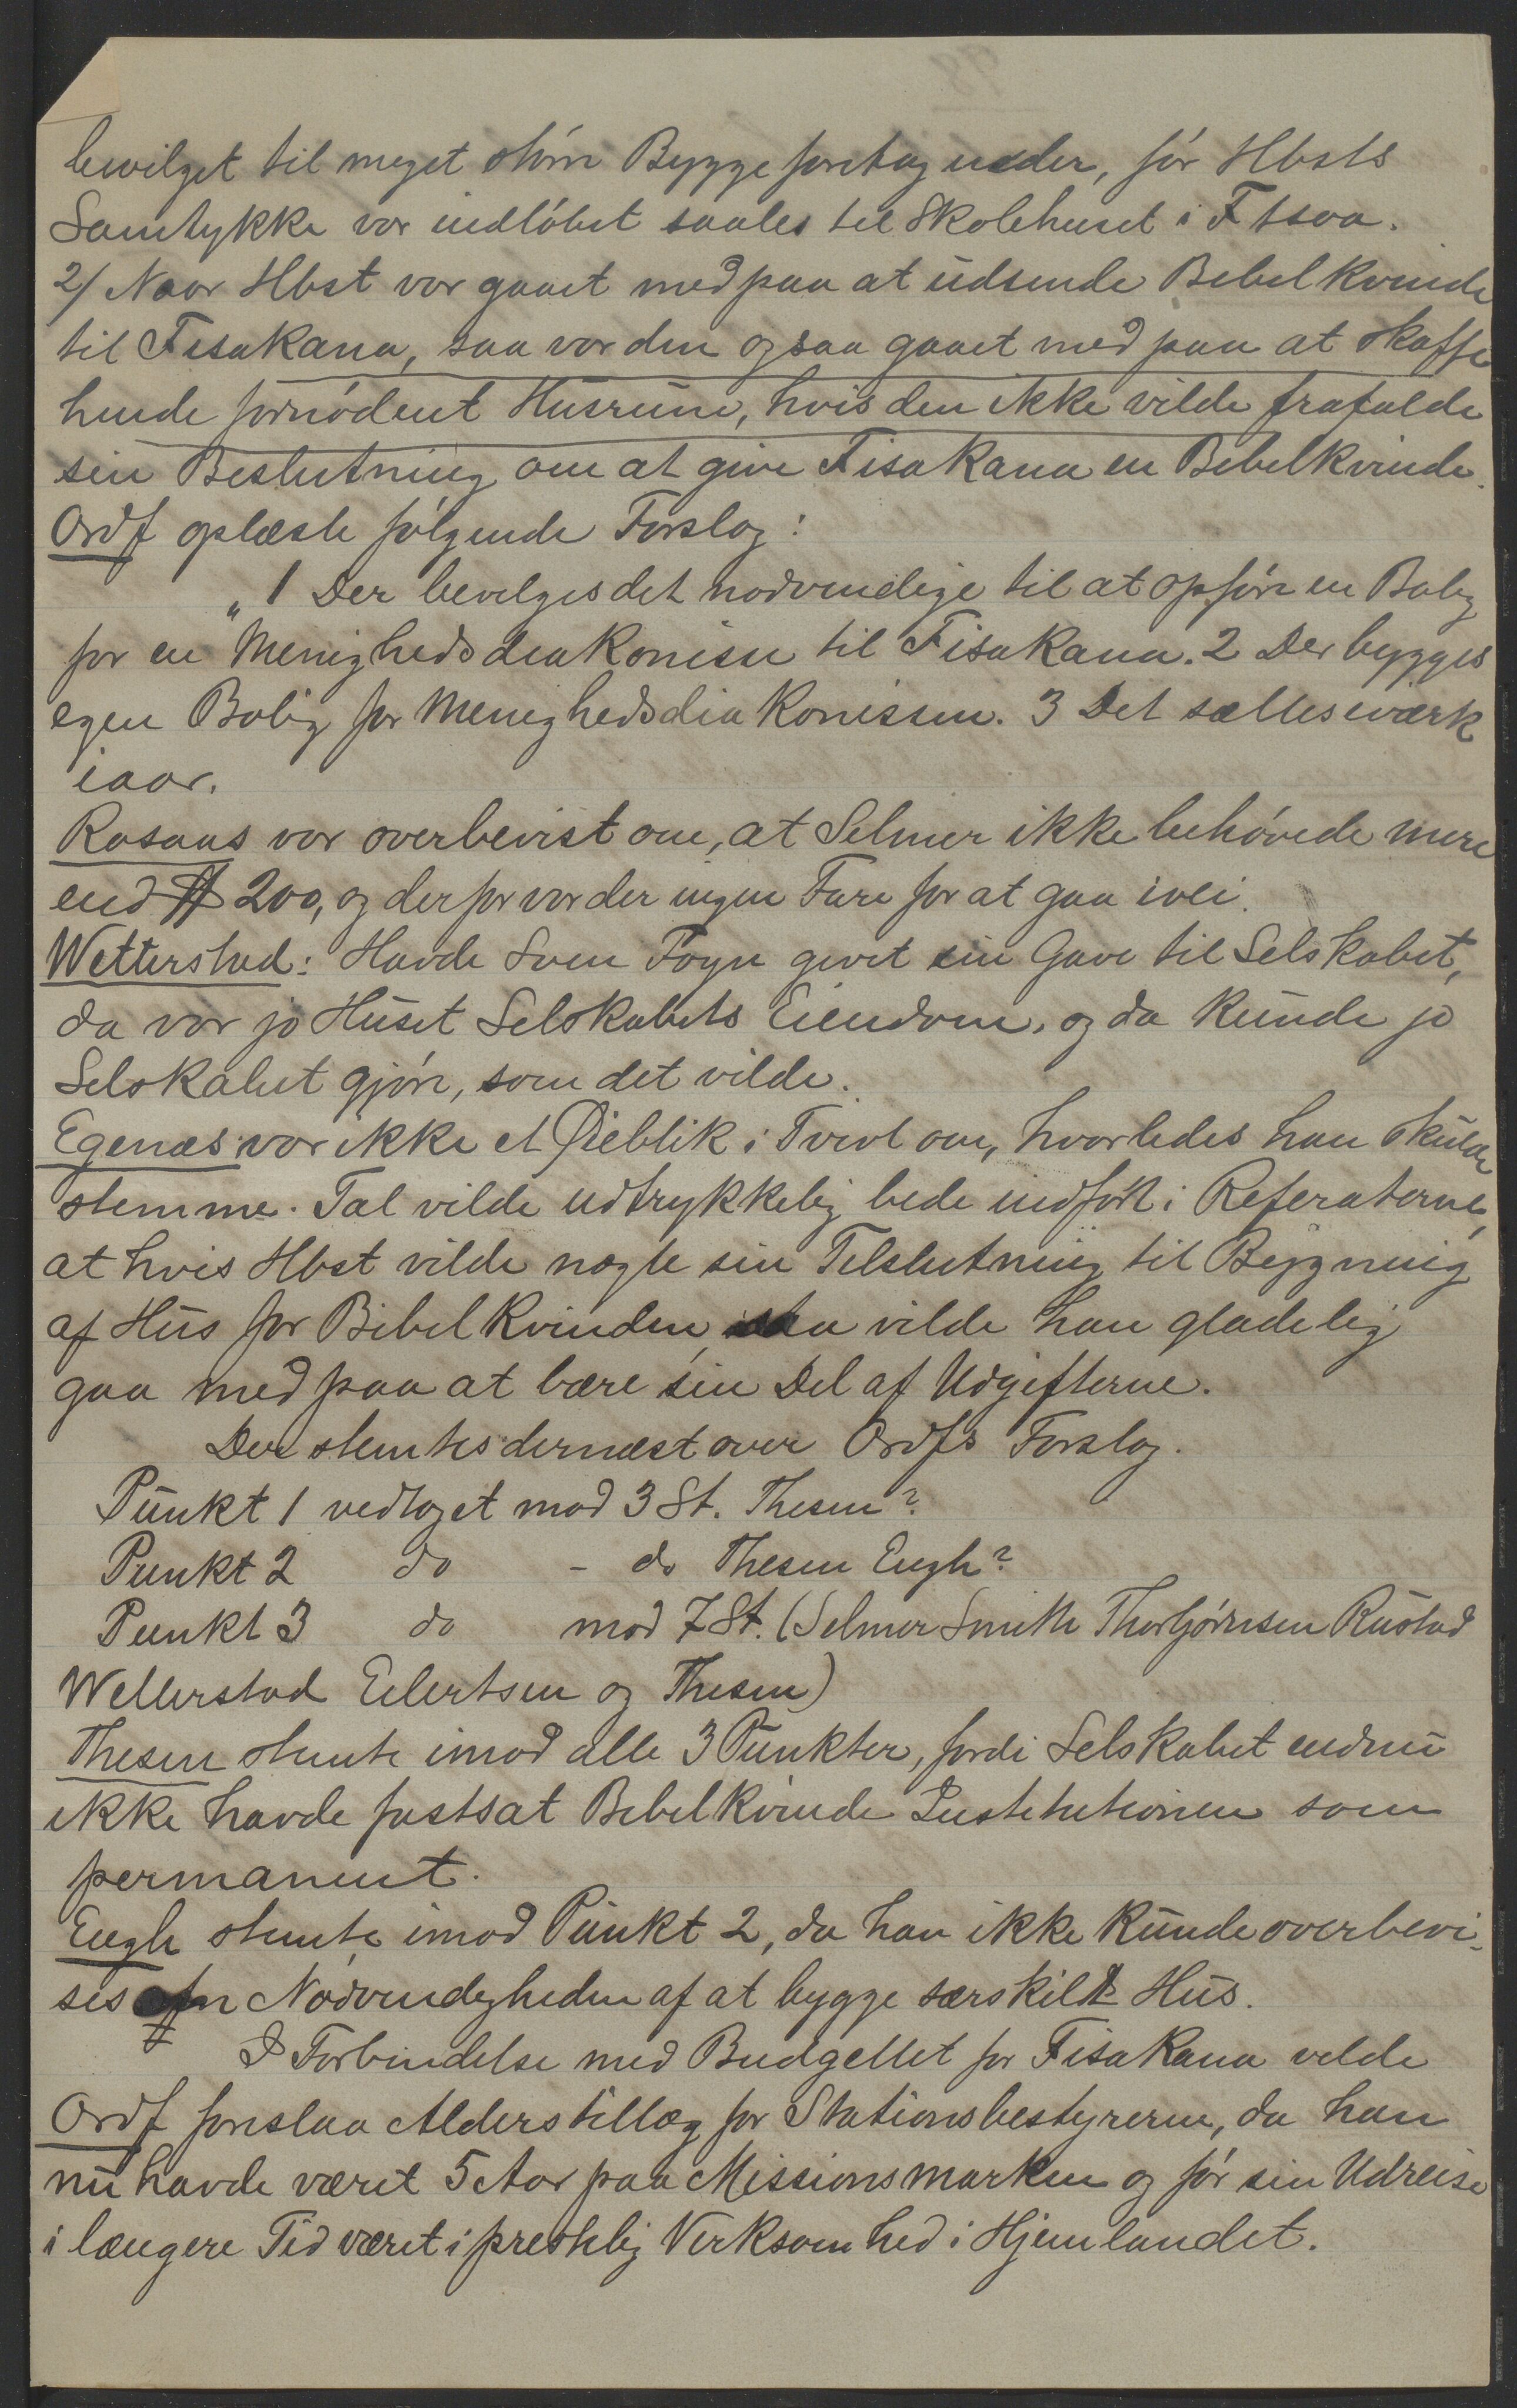 bevilget til meget større Byggeforetagneder, før Hbsts
Samtykke var indløbet saales til Skolehuset i Ftsoa.
2/ Naar Hbst var gaaet med paa at udsende Bibelkvinde
til Fisakana, saa var den ogsaa gaaet med paa at skaffe
hende fornødent Husrum, hvis den ikke vilde frafalde
sin Beslutning om at give Fisakana en Bibelkvinde.
Ordf oplæste følgende Forslag:
„1 Der bevilges det nødvendige til at opføre en Bolig
for en Menighedsdiakonisse til Fisakana. 2 Der bygges
egen Bolig for Menighedsdiakonissen. 3 Det sættes iværk
iaar.
Rosaas var overbevist om, at Selmer ikke behøvede mere
end $ 200, og derfor var der ingen Fare for at gaa ivei.
Wetterstad: Havde Sven Foyn givet sin Gave til Selskabet,
da var jo Huset Selskabets Eiendom, og da kunde jo
Selskabet gjøre, som det vilde.
Egenæs var ikke et Øieblik i Tvivl om, hvorledes han skulde
stemme. Tal vilde udtrykkelig bede indført i Referaterne,
at hvis Hbst vilde nægte sin Tilslutning til Bygning
af Hus for Bibelkvinden, saa vilde han gladelig
gaa med paa at bære sin Del af Udgifterne.
Der stemtes dernæst over Ordfs Forslag.
Punkt 1 vedtaget mod 3 St. Thesen?
Punkt 2 do - do Thesen Engh?
Punkt 3 do mod 7 St. (Selmer Smith Thorbjørnsen Rustad
Wetterstad Eilertsen og Thesen)
Thesen stemte imod alle 3 Punkter, fordi Selskabet endnu
ikke havde fastsat Bibelkvinde Institutionen som
permanent.
Engh stemte imod Punkt 2, da han ikke kunde overbevi-
ses om Nødvendigheden af at bygge særskilt Hus.
I Forbindelse med Budgettet for Fisakana vilde
Ordf foreslaa Alderstillæg for Stationsbestyreren, da han
nu havde været 5 Aar paa Missionsmarken og før sin Udreise
i længere Tid været i prestelig Virksomhed i Hjemlandet.